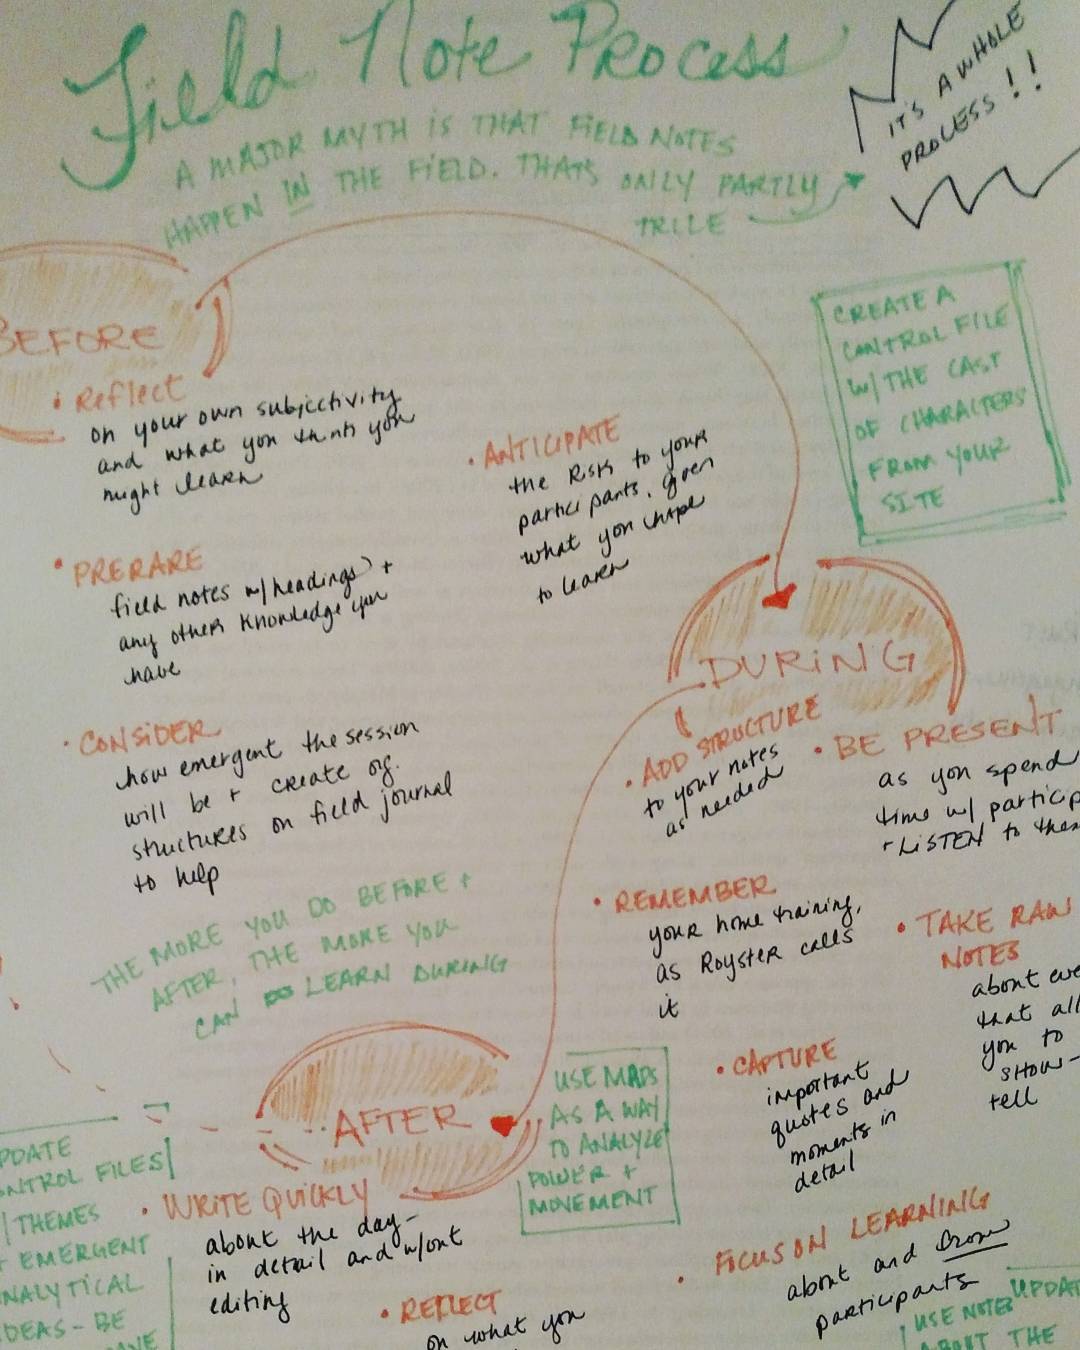 Field Note Process
A MAJOR MYTH IS THAT FIELD NOTES
HAPPEN IN THE FIELD. THATS ONLY PARTLY
TRUE
IT'S A WHOLE
PROCESS!!
BEFORE
• Reflect
on your own subjectivity
and what you think you
might learn
• PREPARE
field notes w/headings +
any other knowledge you
have
• CONSIDER
how emergent the session
will be + create org.
structures on field journal
to help
• ANTICIPATE
the risks to your
participants, given
what you hope
to learn
CREATE A
CONTROL FILE
W/ THE CAST
OF CHARACTERS
FROM YOUR
SITE
THE MORE YOU DO BEFORE +
AFTER, THE MORE YOU
CAN LEARN DURING
DURING
• ADD STRUCTURE
to your notes
as needed
• BE PRESENT
as you spend
time w/ particip
+ LISTEN to them
• REMEMBER
your home training,
as Royster calls
it
• TAKE RAW
NOTES
about eve
that all
you to
show-
tell
• CAPTURE
important
quotes and
moments in
detail
• FOCUS ON LEARNING
about and from
participants
USE NOTES
ABOUT THE
UPDAT
AFTER
USE MAPS
AS A WAY
TO ANALYZE
POWER +
MOVEMENT
• WRITE QUICKLY
about the day-
in detail and w/out
editing
• REFLECT
on what you
PDATE
ONTROL FILES
/ THEMES
+ EMERGENT
NALYTICAL
DEAS - BE